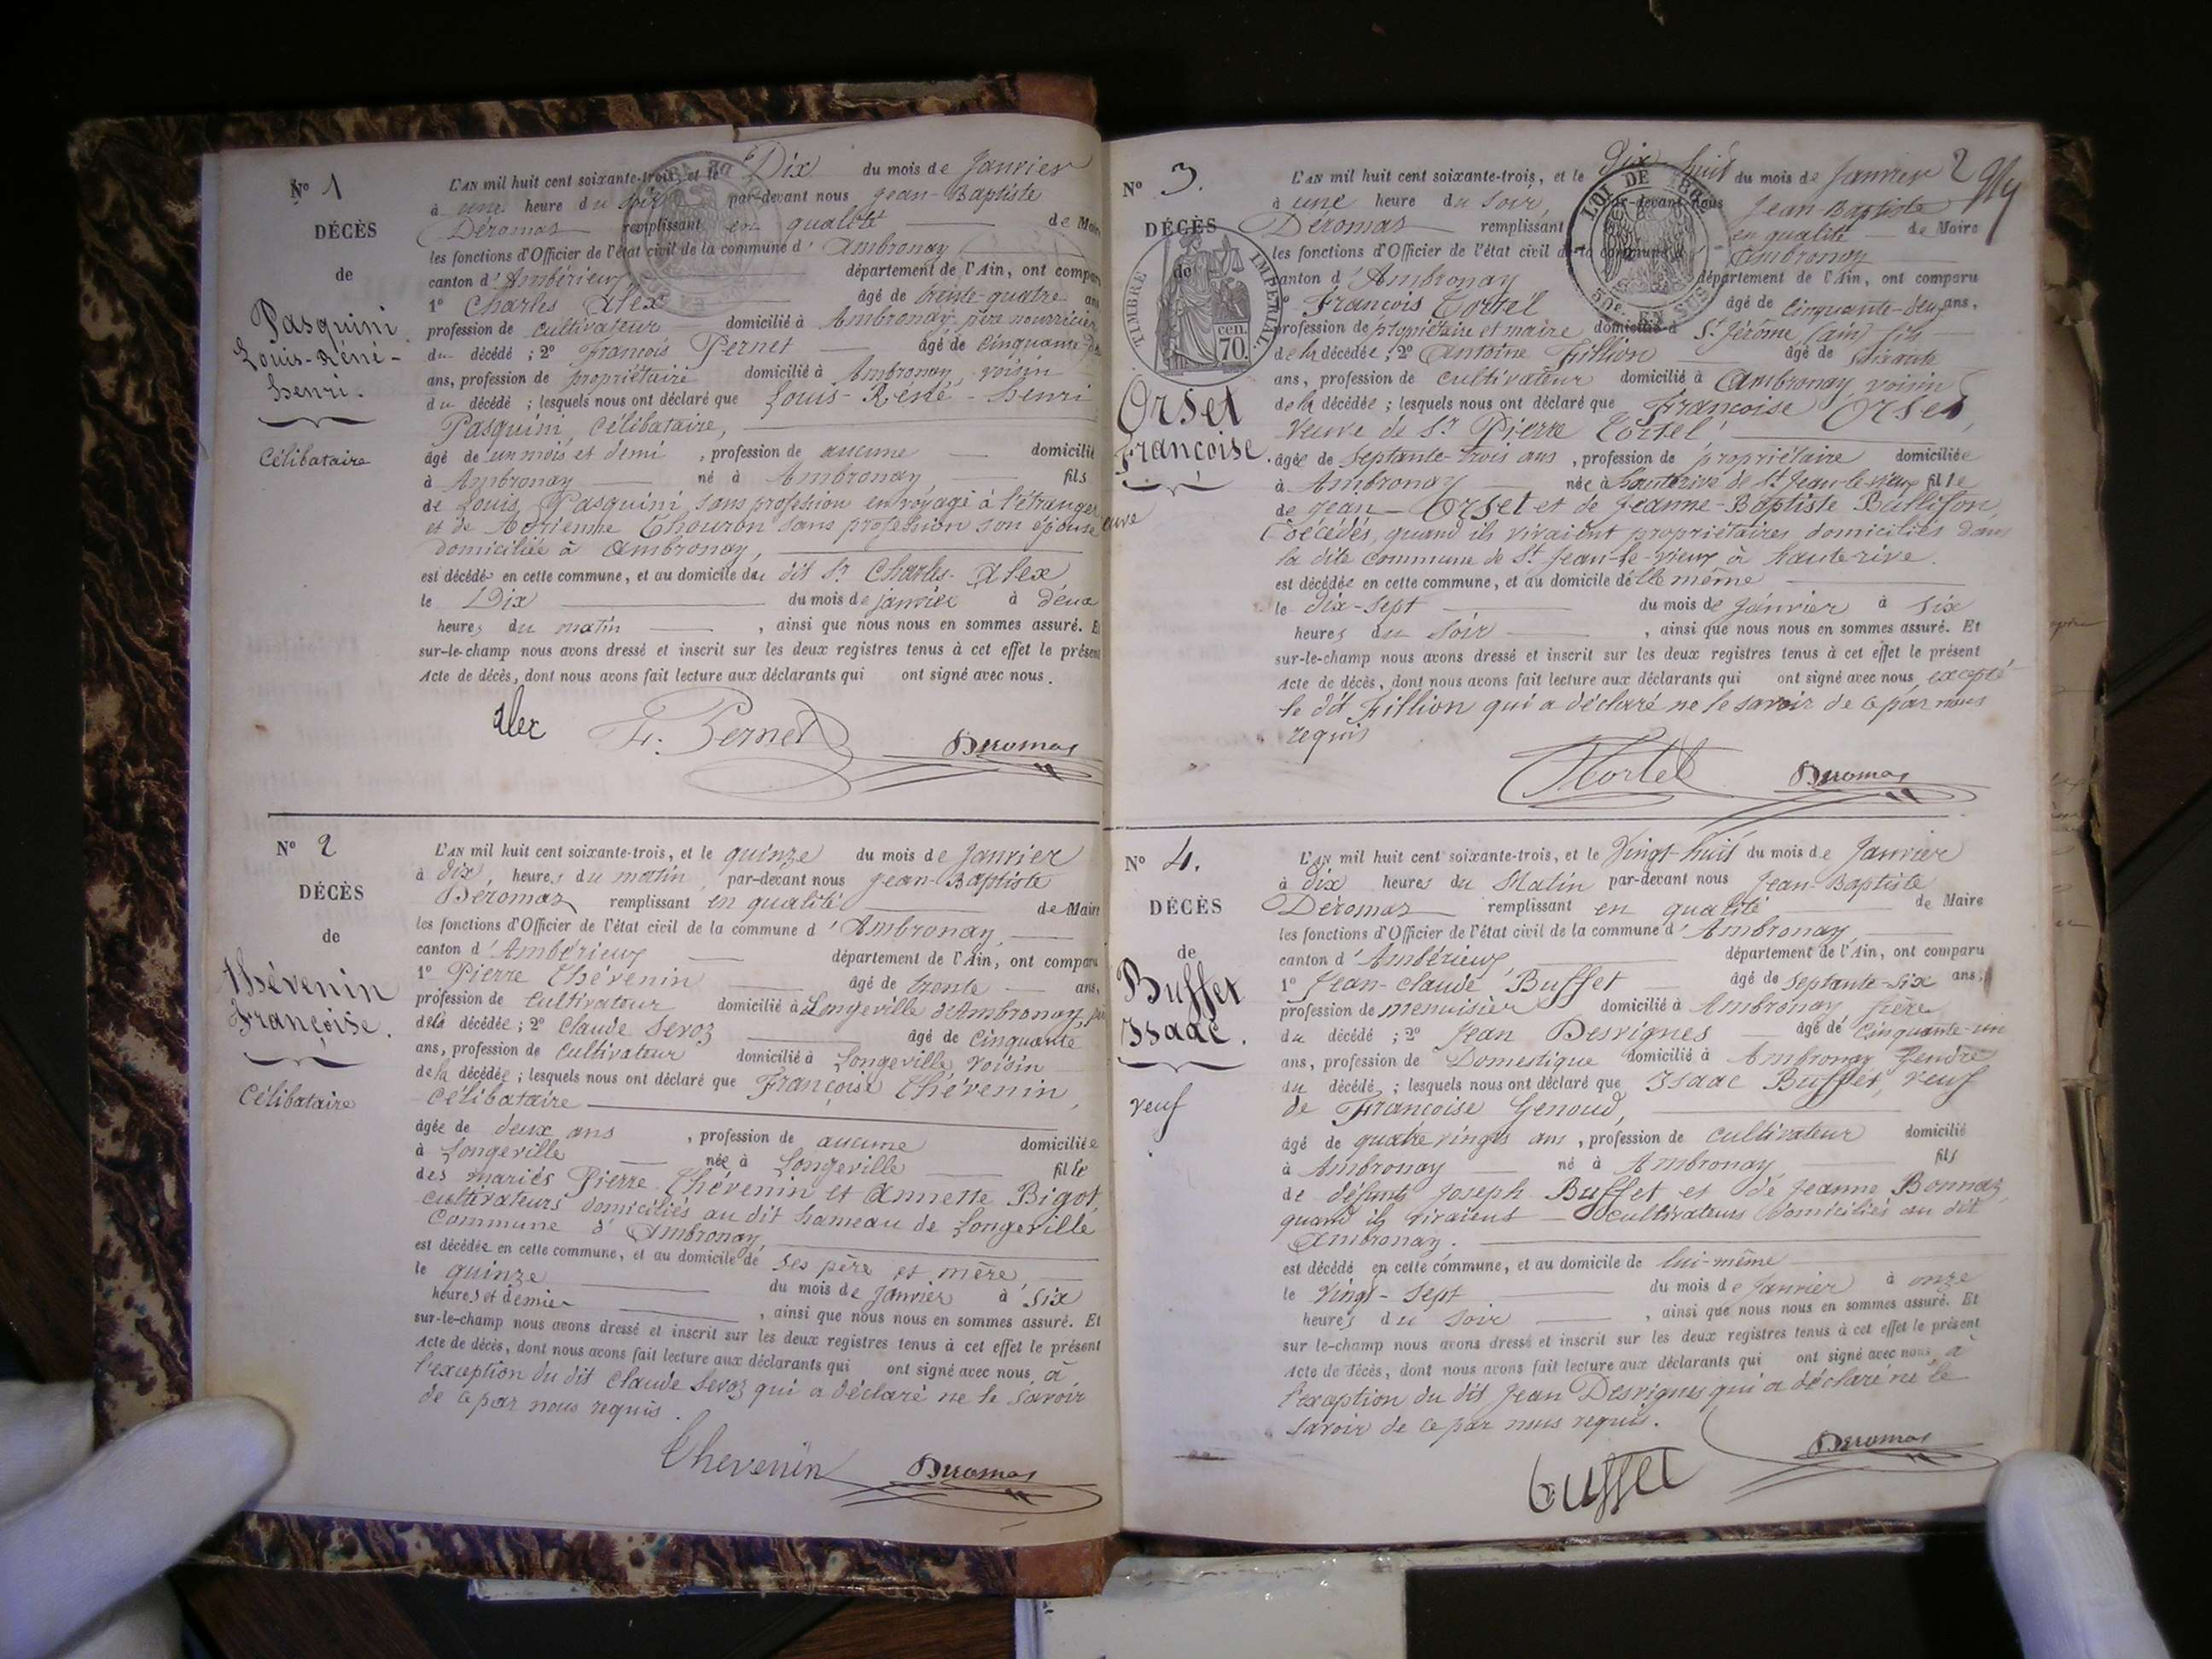 N° 1
DÉCÈS
de
Pasquini
Louis-Réné-
henri.
Célibataire
L'AN mil huit cent soixante-trois, et le Dix du mois de Janvier
à une heure du soir par-devant nous Jean-Baptiste
Déromas remplissant en qualité de Maire
les fonctions d'Officier de l'état civil de la commune d'Ambronay
canton d'Ambérieux département de l'Ain, ont comparu
1° Charles Alex âgé de trente-quatre ans
profession de cultivateur domicilié à Ambronay père nourricier
du décédé ; 2° François Pernet âgé de cinquante
ans, profession de propriétaire domicilié à Ambronay, voisin
du décédé ; lesquels nous ont déclaré que Louis-Réné-henri
Pasquini, Célibataire,
âgé de un mois et demi , profession de aucune domicilié
à Ambronay né à Ambronay, fils
de Louis Pasquini, sans profession en voyage à l'étranger
et de Adrienne Thouron sans profession son épouse
domiciliée à Ambronay,
est décédé en cette commune, et au domicile du dit Sr Charles Alex
le Dix du mois de janvier à deux
heures du matin , ainsi que nous nous en sommes assuré. Et
sur-le-champ nous avons dressé et inscrit sur les deux registres tenus à cet effet le présent
Acte de décès, dont nous avons fait lecture aux déclarants qui ont signé avec nous.
Alex F. Pernet Deromas
N° 2
DÉCÈS
de
Thévenin
Françoise.
Célibataire
L'AN mil huit cent soixante-trois, et le quinze du mois de Janvier
à dix heures du matin, par-devant nous Jean-Baptiste
Déromas remplissant en qualité de Maire
les fonctions d'Officier de l'état civil de la commune d'Ambronay,
canton d'Ambérieux département de l'Ain, ont comparu
1° Pierre Thévenin âgé de trente ans,
profession de cultivateur domicilié à Longeville d'Ambronay,
de la décédée ; 2° Claude Servoz âgé de cinquante
ans, profession de cultivateur domicilié à Longeville, voisin
de la décédée ; lesquels nous ont déclaré que Françoise Thévenin,
Célibataire
âgée de deux ans , profession de aucune domiciliée
à Longeville née à Longeville fille
des mariés Pierre Thévenin et Annette Bigot,
cultivateurs domiciliés au dit hameau de Longeville
Commune d'Ambronay,
est décédée en cette commune, et au domicile de ses père et mère,
le quinze du mois de Janvier à six
heures et demie , ainsi que nous nous en sommes assuré. Et
sur-le-champ nous avons dressé et inscrit sur les deux registres tenus à cet effet le présent
Acte de décès, dont nous avons fait lecture aux déclarants qui ont signé avec nous à
l'exception du dit Claude Servoz qui a déclaré ne le savoir
de ce par nous requis.
Thevenin Deromas
2
N° 3.
DÉCÈS
de
TIMBRE IMPÉRIAL
70 cen.
Orset
Françoise.
veuve
LOI DE 1862
50c. EN SUS
L'AN mil huit cent soixante-trois, et le dix huit du mois de Janvier
à une heure du soir, par-devant nous Jean Baptiste
Déromas remplissant en qualité de Maire
les fonctions d'Officier de l'état civil de la commune d'Ambronay
canton d'Ambronay département de l'Ain, ont comparu
1° François Tortel âgé de cinquante-deux ans,
profession de propriétaire et maire domicilié à St Jérôme (ain) fils
de la décédée ; 2° Antoine Fillion âgé de soixante
ans, profession de cultivateur domicilié à Ambronay voisin
de la décédée ; lesquels nous ont déclaré que Françoise Orset,
Veuve de Sr Pierre Tortel
âgée de septante-trois ans , profession de propriétaire domiciliée
à Ambronay née à hauterive de St Jean-le-vieux fille
de Jean Orset et de Jeanne-Baptiste Bullifon,
Décédés, quand ils vivaient propriétaires domiciliés dans
la dite commune de St Jean-le-vieux à hauterive.
est décédée en cette commune, et au domicile d'elle même
le dix-sept du mois de Janvier à six
heures du soir , ainsi que nous nous en sommes assuré. Et
sur-le-champ nous avons dressé et inscrit sur les deux registres tenus à cet effet le présent
Acte de décès, dont nous avons fait lecture aux déclarants qui ont signé avec nous, excepté
le dit Fillion qui a déclaré ne le savoir de ce par nous
requis
Tortel Deromas
N° 4.
DÉCÈS
de
Buffet
Isaac.
veuf
L'AN mil huit cent soixante-trois, et le Vingt-huit du mois de Janvier
à dix heures du Matin par-devant nous Jean-Baptiste
Déromas remplissant en qualité de Maire
les fonctions d'Officier de l'état civil de la commune d'Ambronay,
canton d'Ambérieux, département de l'Ain, ont comparu
1° Jean-Claude Buffet âgé de septante-six ans,
profession de menuisier domicilié à Ambronay frère
du décédé ; 2° Jean Desvignes âgé de cinquante-un
ans, profession de Domestique domicilié à Ambronay Gendre
du décédé ; lesquels nous ont déclaré que Isaac Buffet, veuf
de Françoise Genoud,
âgé de quatre vingts ans , profession de cultivateur domicilié
à Ambronay né à Ambronay fils
de défunts Joseph Buffet et de Jeanne Bonnaz,
quand ils vivaient cultivateurs domiciliés au dit
Ambronay.
est décédé en cette commune, et au domicile de lui-même
le Vingt-Sept du mois de Janvier à onze
heures du soir , ainsi que nous nous en sommes assuré. Et
sur le-champ nous avons dressé et inscrit sur les deux registres tenus à cet effet le présent
Acte de décès, dont nous avons fait lecture aux déclarants qui ont signé avec nous à
l'exception du dit Jean Desvignes qui a déclaré ne le
savoir de ce par nous requis.
buffet Deromas